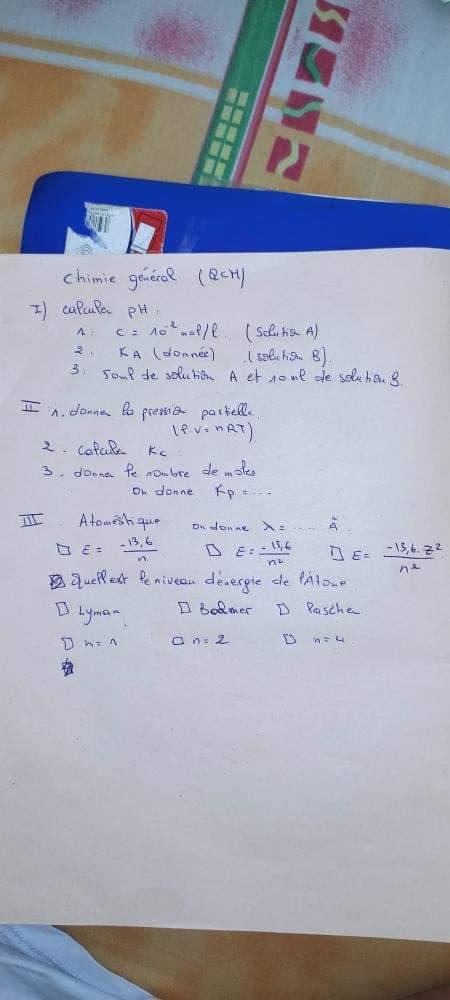 Chimie général (QCM)
I) calculer pH :
1. c = 10⁻² mol/l. (Solution A)
2. KA (donnée) (solution B).
3. 50ml de solution A et 10 ml de solution B.
II 1. donner la pression partielle.
(P.V = nRT)
2. calculer Kc
3. donner le nombre de moles
on donne Kp = ....
III Atoméstique. on donne λ = .... Å
□ E = -13,6/n □ E = -13,6/n² □ E = -13,6. Z²/n²
Quell est le niveau d'énergie de l'Atome
□ Lyman □ Balmer □ Paschen
□ n = 1 □ n = 2 □ n = 4